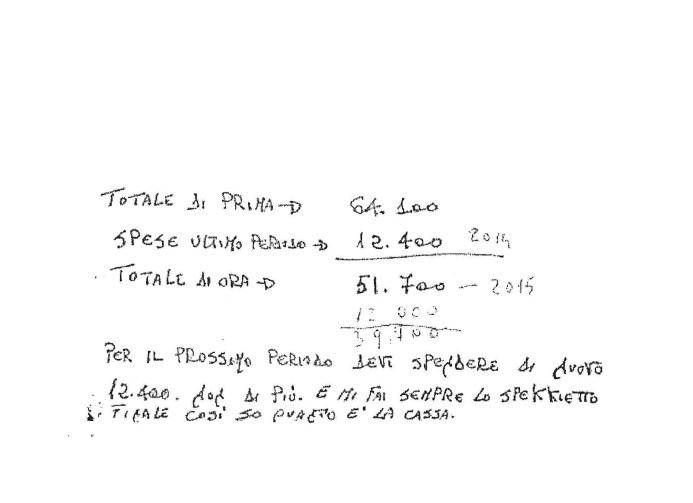 TOTALE DI PRIMA → 64.100
SPESE ULTIMO PERIODO → 12.400 2014
TOTALE DI ORA → 51.700 — 2015
12 000
39,700
PER IL PROSSIMO PERIODO DEVI SPENDERE DI NUOVO
12.400. NON DI PIÙ. E MI FAI SEMPRE LO SPEKKIETTO
FINALE COSÌ SO QUANTO E' LA CASSA.